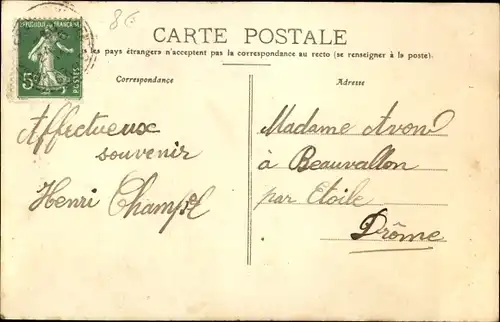 8€
RÉPUBLIQUE FRANÇAISE
5c
POSTES
CARTE POSTALE
les pays étrangers n'acceptent pas la correspondance au recto (se renseigner à la poste).
Correspondance
Affectueux
souvenir
Henri
Adresse
Madame Avond
à Beauvallon
par Etoile
Drôme